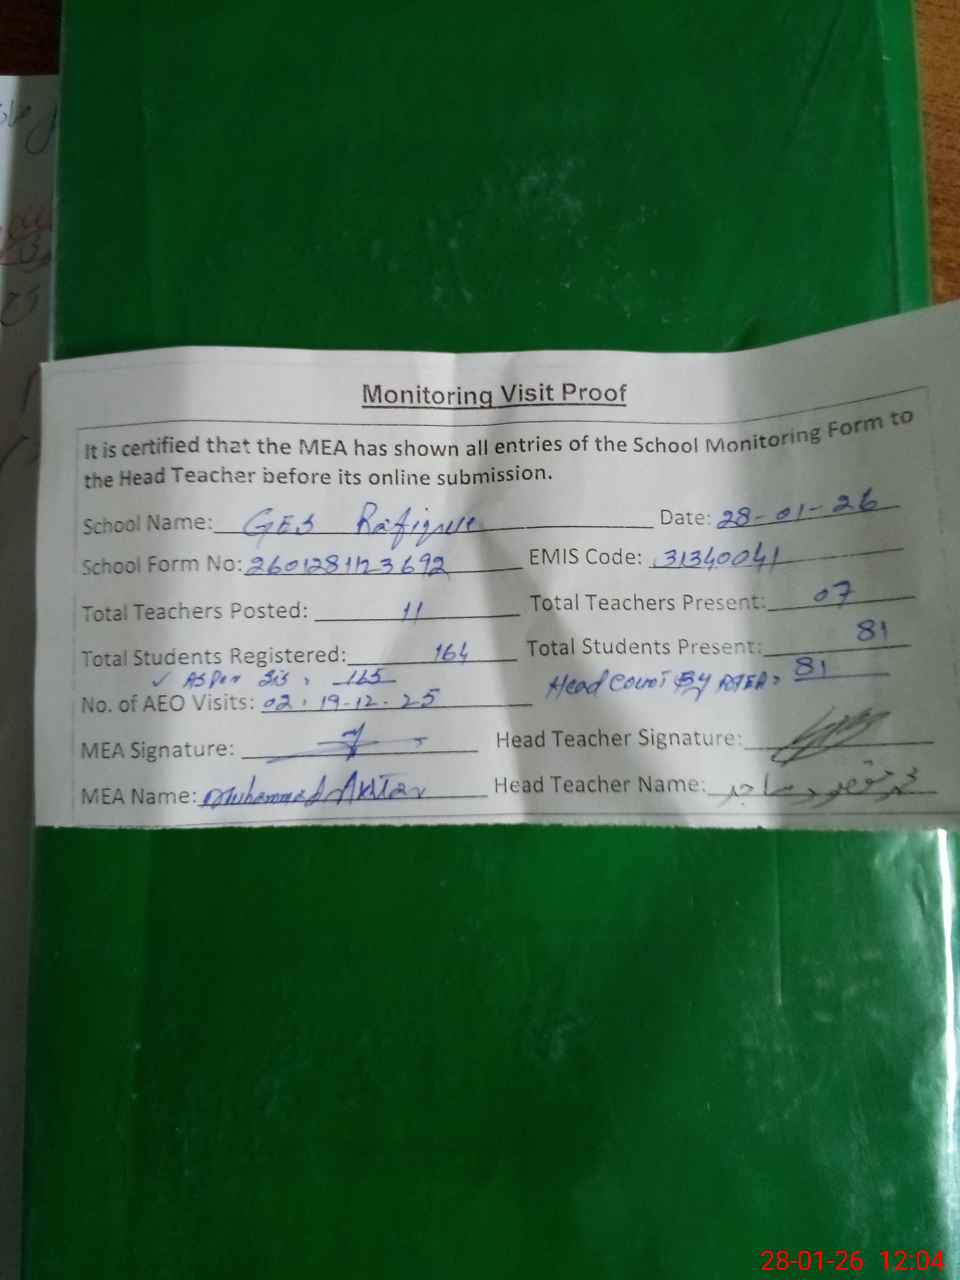 Monitoring Visit Proof
It is certified that the MEA has shown all entries of the School Monitoring Form to
the Head Teacher before its online submission.
School Name: GES Rafique Date: 28-01-26
School Form No: EMIS Code: 31340041
Total Teachers Posted: 11 Total Teachers Present: 07
Total Students Registered: 164 Total Students Present: 81
✓ As Per SIS, 165 Head Count By MEA, 81
No. of AEO Visits: 02, 19-12-25
MEA Signature: Head Teacher Signature:
MEA Name: Muhammad Akhtar Head Teacher Name:
28-01-26 12:04